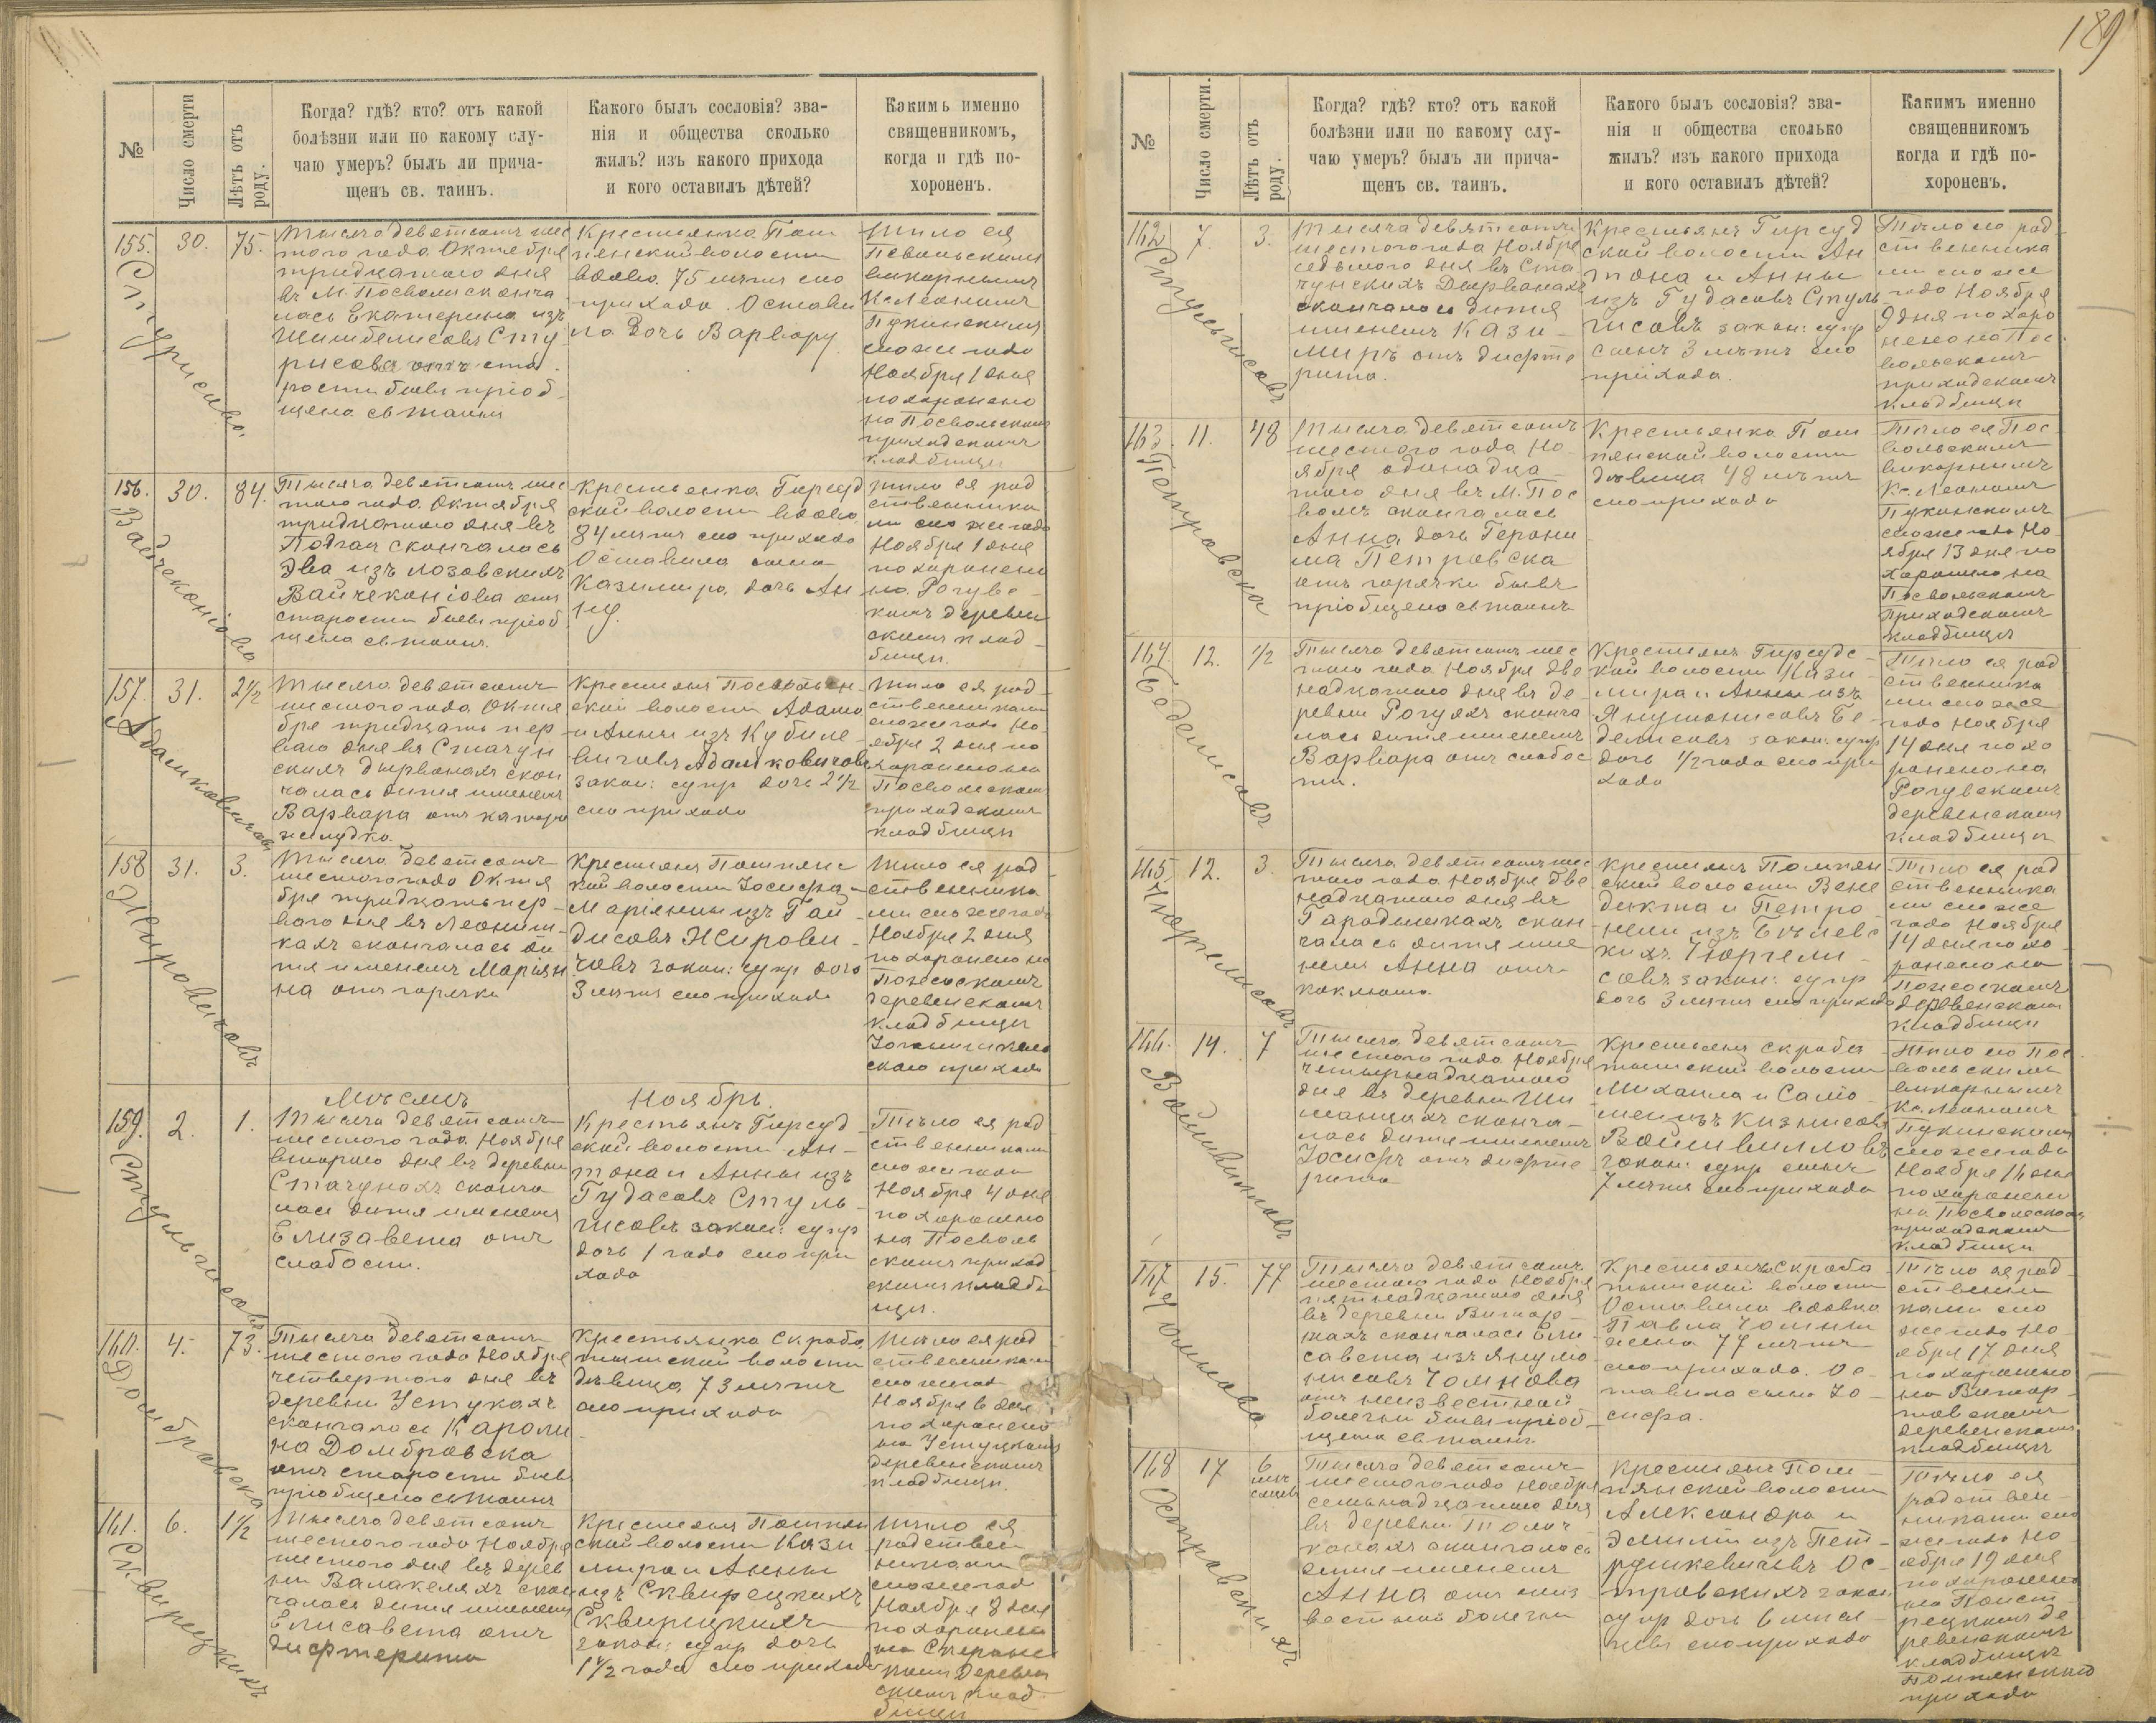 189
№
Число смерти
Лѣтъ отъ роду.
Когда? гдѣ? кто? отъ какой
болѣзни или по какому слу-
чаю умеръ? былъ ли прича-
щенъ св. таинъ.
Какого былъ сословія? зва-
нія и общества сколько
жилъ? изъ какого прихода
и кого оставилъ дѣтей?
Какимъ именно
священникомъ,
когда и гдѣ по-
хороненъ.
155.
30.
75.
Тысяча девятсотъ шес
того года Октября
тридцатаго дня
въ М. Посволи сконча
лась Екатерина изъ
Шимбелисовъ Сту
рисова отъ ста
рости бывъ пріоб
щена св таинъ
Крестьянка Пом
пянской волости
вдова 75 лѣтъ сего
прихода. Остави
ла дочь Варвару
Тѣло ея
Посвольскимъ
викарнымъ
Кс. Леономъ
Пукинскимъ
сего же года
Ноября 1 дня
похоронено
на Посвольскомъ
приходскомъ
кладбищи
156.
30.
84.
Тысяча девятсотъ шес
того года Октября
тридцатаго дня въ
скончалась
Эва изъ Лозовскихъ
Вайчеконіова отъ
старости бывъ пріоб
щена св таинъ.
Крестьянка Гирсуд
ской волости вдова
84 лѣтъ сего прихода
Оставила сына
Казимира, дочь Ан
ну.
тѣло ея род
ственника
ми сего же года
Ноября 1 дня
похоронено
на Рогувс
комъ деревен
скомъ клад
бищи.
157.
31.
2½
Тысяча девятсотъ
шестого года Октя
бря тридцать пер
ваго дня въ Стачун
скихъ Дырванахъ скон
чалась дитя именемъ
Варвара отъ катара
желудка.
Крестьянъ Посвольн-
ской волости Адама
и Анны изъ Кубиле-
вичовъ Адамковичовъ
закон: супр дочь 2½
сего прихода
Тѣло ея род
ственниками
сего же года Но
ября 2 дня по
хоронено на
Посвольскомъ
приходскомъ
кладбищи
158
31.
3.
Тысяча девятсотъ
шестого года Октя
бря тридцать пер-
ваго дня въ Леониш-
кахъ скончалась ди
тя именемъ Маріян
на отъ горячки
Крестьянъ Помпянс
кой волости Іосифа
Маріянны изъ Гай
дисовъ Жирови-
човъ закон: супр дочь
3 лѣтъ сего прихода
Тѣло ея род
ственника
ми сего же года
Ноября 2 дня
похоронено на
деревенскомъ
кладбищи
скаго прихода
Мѣсяцъ
Ноябрь.
159.
2.
1.
Тысяча девятсотъ
шестого года Ноября
втораго дня въ деревни
Стачунахъ сконча
лась дитя именемъ
Елизавета отъ
слабости.
Крестьянъ Гирсуд-
ской волости Ан-
тона и Анны изъ
Гудасовъ Стуль-
гисовъ закон: супр
дочь 1 года сего при
хода
Тѣло ея род
ственниками
сего же года
Ноября 4 дня
похоронено
на Посволь
скомъ приход
скомъ кладби
щи.
160.
4.
73.
Тысяча девятсотъ
шестого года Ноября
четвертого дня въ
деревни Устукахъ
скончалась Кароли
на Домбровска
отъ старости бывъ
пріобщена св таинъ
Крестьянка Скроба
тышской волости
дѣвица 73 лѣтъ
сего прихода
Тѣло ея род
ственниками
сего же года
Ноября 6 дня
похоронено
на Устукскомъ
деревенскомъ
кладбищи.
161.
6.
1½
Тысяча девятсотъ
шестого года Ноября
шестого дня въ дерев
ни Валакеляхъ скон
чалась дитя именемъ
Елисавета отъ
дифтерита
Крестьянъ Помпян
ской волости Кази
мира и Анны
изъ Сквирецкихъ
Сквирецкихъ
закон: супр дочь
1½ года сего прихода
Тѣло ея
родствен
никами
сего же год
Ноября 8 дня
похоронено
деревен
скомъ клад
бищи
Стурисова.
Вайчеконіова
Адамковичовъ
Жировичовъ
Стульгисовъ
Домбровска
Сквирецкихъ
№
Число смерти.
Лѣтъ отъ роду.
Когда? гдѣ? кто? отъ какой
болѣзни или по какому слу-
чаю умеръ? былъ ли прича-
щенъ св. таинъ.
Какого былъ сословія? зва-
нія и общества сколько
жилъ? изъ какого прихода
и кого оставилъ дѣтей?
Какимъ именно
священникомъ
когда и гдѣ по-
хороненъ.
162
7.
3.
Тысяча девятсотъ
шестого года Ноября
седьмого дня въ Ста
чунскихъ Дырванахъ
скончалось дитя
именемъ Кази-
миръ отъ дифте
рита.
Крестьянъ Гирсуд
ской волости Ан
тона и Анны
изъ Гудасовъ Стуль-
гисовъ закон: супр
сынъ 3 лѣтъ сего
прихода.
Тѣло его род
ственника
ми сего же
года Ноября
9 дня похоро
нено на Пос
вольскомъ
приходскомъ
кладбищи
163.
11.
48
Тысяча девятсотъ
шестого года Но
ября одинадца-
таго дня въ М. Пос
воли скончалась
Анна дочь Герони
ма Петровска
отъ горячки бывъ
пріобщена св таинъ
Крестьянка Пом
пянской волости
дѣвица 48 лѣтъ
сего прихода
Тѣло ея Пос
вольскимъ
викарнымъ
Кс. Леономъ
Пукинскимъ
сего же года Но
ября 13 дня по
хоронено на
Посвольскомъ
Приходскомъ
кладбищи
164
12.
½
Тысяча девятсотъ шес
того года Ноября две
надцатаго дня въ де
ревни Рогуяхъ сконча
лась дитя именемъ
Варвара отъ слабос
ти.
Крестьянъ Гирсудс-
кой волости Кази-
мира и Анны изъ
Янушонисовъ Бе-
делисовъ закон: супр
дочь ½ года сего при
хода
Тѣло ея род
ственника
ми сего же
года Ноября
14 дня похо
ронено на
Рогувскомъ
деревенскомъ
кладбищи
165.
12.
3.
Тысяча девятсотъ шес
того года Ноября две
надцатаго дня въ
скон
чалась дитя име
немъ Анна отъ
коклюша.
Крестьянъ Помпян
ской волости Вене
дикта и Петро
нели изъ
кихъ Норгели-
совъ закон: супр
дочь 3 лѣтъ сего прихода
Тѣло ея род
ственника
ми сего же
года Ноября
14 дня похо
ронено на
деревенскомъ
кладбищи
166.
14.
7
Тысяча девятсотъ
шестого года Ноября
четырнадцатаго
дня въ деревни Ши
манцахъ сконча-
лось дитя именемъ
Іосифъ отъ дифте
рита
Крестьянъ Скроба
тышской волости
Михаила и Сало-
меи изъ Кизнисовъ
Войшвилловъ
закон: супр сынъ
7 лѣтъ сего прихода
Тѣло его Пос
вольскимъ
викарнымъ
Кс. Леономъ
Пукинскимъ
сего же года
Ноября 16 дня
похоронено
на Посвольскомъ
приходскомъ
кладбищи
167
15.
77
Тысяча девятсотъ
шестого года Ноября
пятнадцатаго дня
въ деревни
скончалась Ели
савета изъ Януло
нисовъ Іомнова
отъ неизвестной
болезни бывъ пріоб
щена св таинъ.
Крестьянка Скроба
тышской волости
Оставила вдовца
Павла
77 лѣтъ
сего прихода. Ос-
тавила сына Іо-
сифа.
Тѣло ея род
ственни
ками сего
же года Но
ября 17 дня
похоронено
деревенскомъ
кладбищи
168
17
6
мѣсяцевъ
Тысяча девятсотъ
шестого года Ноября
семьнадцатаго дня
въ деревни
скончалась
дитя именемъ
Анна отъ неиз
вестной болезни
Крестьянъ Пом-
пянской волости
Александра и
Эмиліи изъ Пет-
рушкевичовъ Ос-
тровскихъ закон
супр дочь 6 мѣся-
цевъ сего прихода
Тѣло ея
родствен-
никами сего
же года Но
ября 19 дня
похоронено
де
ревенскомъ
кладбищи
Помпянскаго
прихода
Стульгисовъ
Петровска
Беделисовъ
Норгелисовъ
Войшвилловъ
Іомнова
Островскихъ